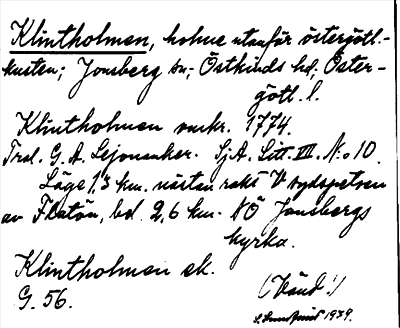 Klintholmen, holme utanför östergötl.-
kusten; Jonsberg sn; Östkinds hd; Öster-
götl. l.
Klintholmen omkr. 1774.
Trol. G. A. Lejonanker. Sj.A. Litt. III. N:o 10.
Läge 1,3 km. nästan rakt V sydspetsen
av Flatön, bel. 2,6 km. NÖ Jonsbergs
kyrka.
Klintholmen ek.
G. 56.
(Vänd!)
1939.